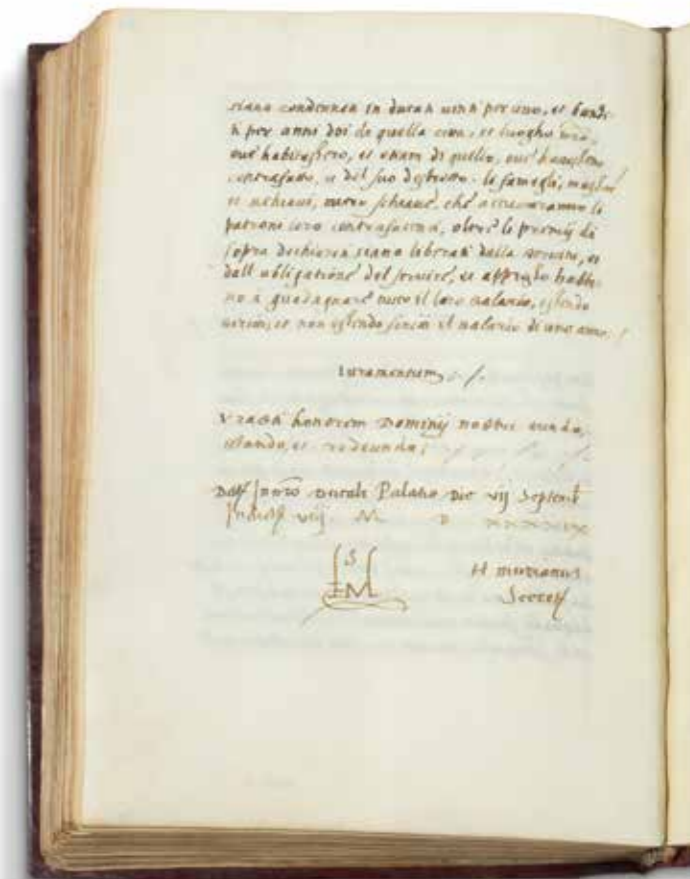 siano condennati in ducati vinti per uno, et bandi-
ti per anni doi de quella cità, et luogho
ove habitassero, et etiam di quello, ove havessero
contrafatto, et del suo destretto. le famegli,
et schiavi, overo schiave, che accusaranno li
patroni loro contrafacienti, oltre li premij di
sopra dechiariti siano liberati dalla servitù, et
dall obligatione del servire, et appresso habbi-
no à guadagnare tutto il loro salario, essendo
et non essendo il salario di uno anno.
Iuramentum
honorem Dominij nostri eundo,
stando, et redeundo
Dat in nrô Ducali Palatio Die vij Septemb
Indict viij. M D xxxxix
S
M
H
Secret